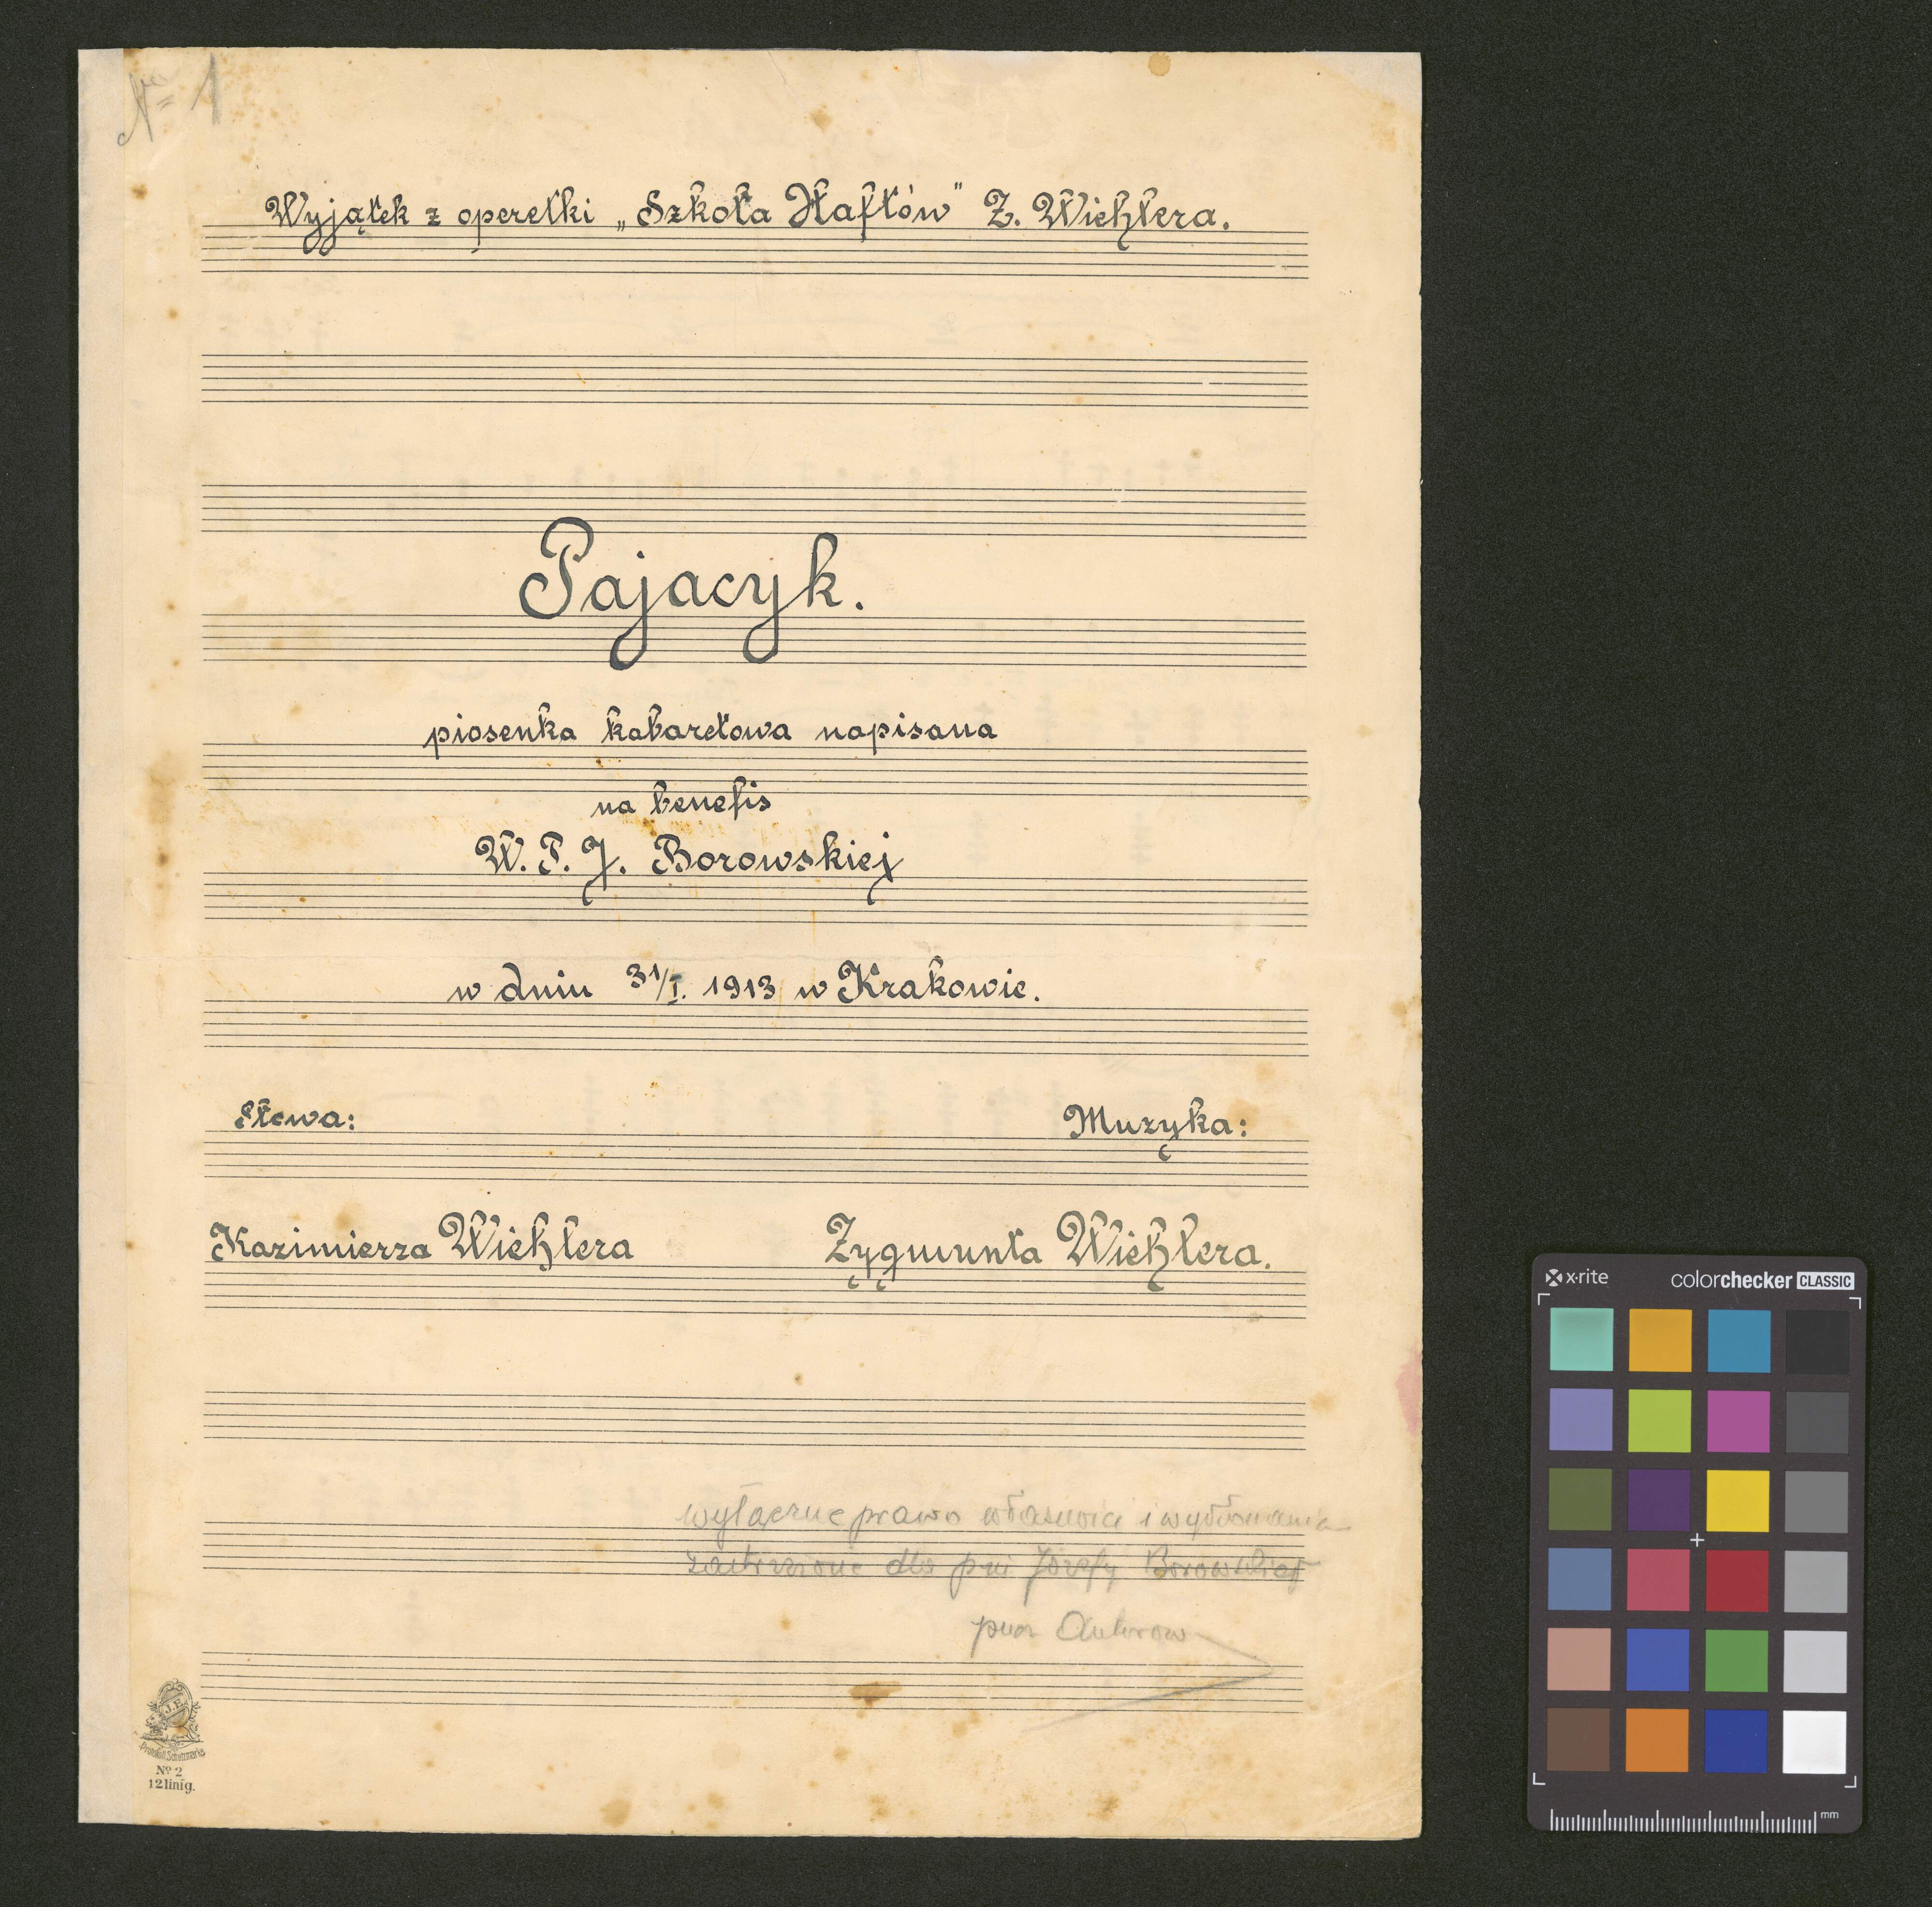 No 1
Wyjątek z operetki „Szkoła Haftów" Z. Wiehlera.
Pajacyk.
piosenka kabaretowa napisana
na benefis
W. P. J. Borowskiej
w dniu 31/I. 1913 w Krakowie.
Słowa:
Muzyka:
Kazimierza Wiehlera
Zygmunta Wiehlera.
wyłączne prawo własności i wykonania
zastrzeżone dla pni Józefy Borowskiej
przez Autorów
J.E.
Protokoll Schutzmarke
No 2
12linig.
x-rite
colorchecker CLASSIC
mm